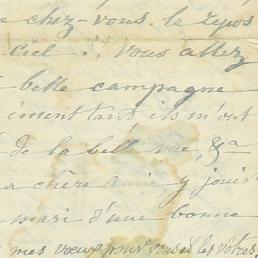 chez-vous. le repos
ciel . Vous allez
belle campagne
iment tant ils m'ont
de la belle vue, &a
a chère amie, y jouir
mari d'une bonne
mes vœux pour vous & les vôtres.